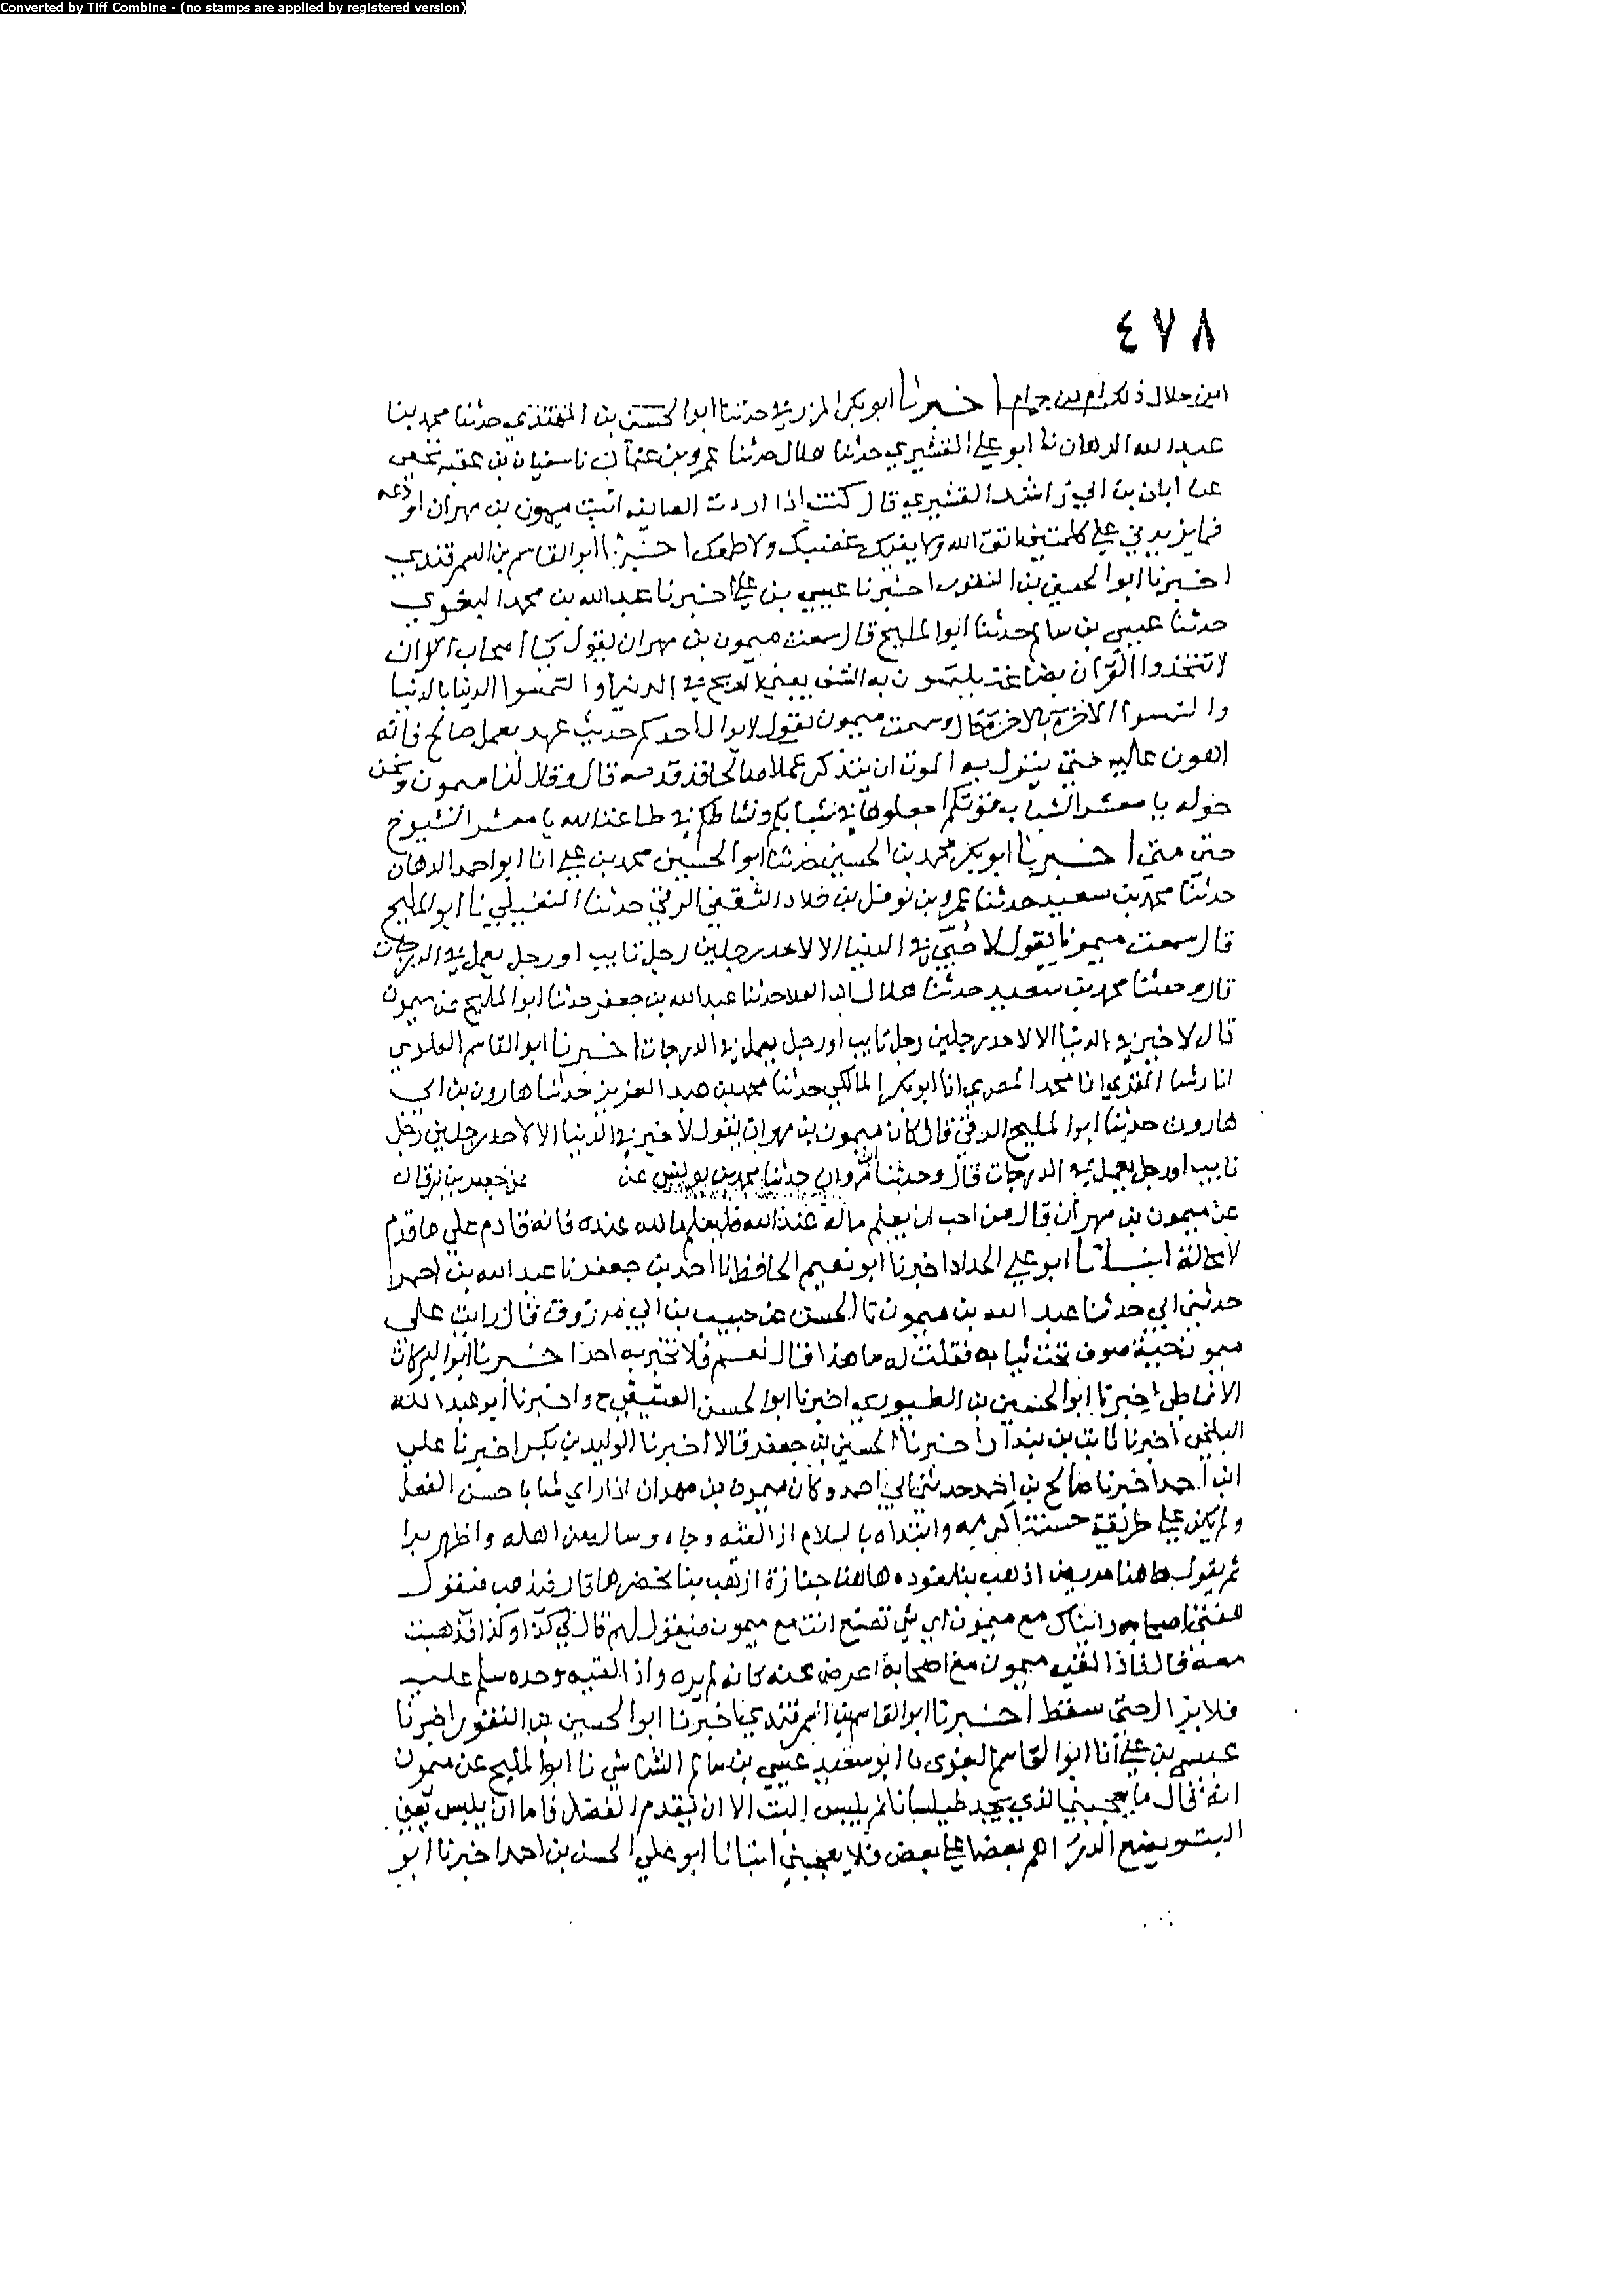 Converted by Tiff Combine - (no stamps are applied by registered version)
٤٧٨
امن حلال ذلك ام من حرام اخبرنا ابو بكر المزرفي حدثنا ابو الحسين بن المهتدي حدثنا محمد بنا
عبد الله الدهان نا ابو علي القشيري حدثنا هلال حدثنا عمرو بن عثمان نا سفيان بن عقبة
عن ابان بن ابي راشد القشيري قال كنت اذا اردت الصايفه اتيت ميمون بن مهران اودعه
فما يزيدني علي كلمتين اتق الله ولا يغرنك غضبك ولا طمعك اخبرنا ابو القاسم بن السمرقندي
اخبرنا ابو الحسين بن النقور اخبرنا عيسي بن علي اخبرنا عبد الله بن محمد البغوي
حدثنا عيسي بن سالم حدثنا ابو المليح قال سمعت ميمون بن مهران يقول يا اصحاب القران
لا تتخذوا القران بضاعة يلتمسون به الشف يعني الربح في الدنيا والتمسوا الدنيا بالدنيا
والتمسوا الاخرة بالاخرة قال وسمعت ميمون يقول لا يزال احدكم حديث عهد بعمل صالح فانه
اهون عليه حتي ينزل به الموت ان يتذكر عملا صالحا قد قدمه قال وقال لنا ميمون ونحن
حوله يا معشر الشباب قوتكم اجعلوها في شبابكم ونشاطكم في طاعة الله يا معشر الشيوخ
حتي متي اخبرنا ابو بكر محمد بن الحسين حدثنا ابو الحسين محمد بن علي انا ابو احمد الدهان
حدثنا محمد بن سعيد حدثنا عمرو بن نوفل بن خلاد الثقفي الرقي حدثنا النفيلي نا ابو المليح
قال سمعت ميمونا يقول لا خير في الدنيا الا لاحد رجلين رجل تايب او رجل يعمل في الدرجات
قال وحدثنا محمد بن سعيد حدثنا هلال بن العلا حدثنا عبد الله بن جعفر حدثنا ابو المليح عن ميمون
قال لا خير في الدنيا الا لاحد رجلين رجل تايب او رجل يعمل في الدرجات اخبرنا ابو القاسم العلوي
انا رشا المقري انا محمد المصري انا ابو بكر المالكي حدثنا محمد بن عبد العزيز حدثنا هارون بن ابي
هارون حدثنا ابو المليح الرقي قال كان ميمون بن مهران يقول لا خير في الدنيا الا لاحد رجلين رجل
تايب او رجل يعمل في الدرجات قال وحدثنا مروان حدثنا محمد بن يونس عن عن جعفر بن برقان
عن ميمون بن مهران قال من احب ان يعلم ماله عند الله فليعلم ما لله عنده فانه قادم علي ما قدم
لا محالة انبانا ابو علي الحداد اخبرنا ابو نعيم الحافظ نا احمد بن جعفر نا عبد الله بن احمد
حدثني ابي حدثنا عبد الله بن ميمون نا الحسن عن حبيب بن ابي مرزوق قال رايت علي
ميمون جبة صوف تحت ثيابه فقلت له ما هذا قال نعم فلا تخبر به احدا اخبرنا ابو البركات
الانماطي اخبرنا ابو الحسين بن الطيوري اخبرنا ابو الحسن العتيقي ح واخبرنا ابو عبد الله
البلخي اخبرنا ثابت بن بندار اخبرنا الحسين بن جعفر قالا اخبرنا الوليد بن بكر اخبرنا علي
ابن احمد اخبرنا صالح بن احمد حدثني ابي احمد وكان ميمون بن مهران اذا راي شابا حسن الفعل
ولم يكن علي طريقة حسنة اكرمه وابتداه بالسلام اذا لقيه وجاه وساله عن اهله واظهر برا
ثم يقول ها هنا مريض اذهب بنا نعوده ها هنا جنازة اذهب بنا نحضرها قال فيذهب فيقول
اصحابه رايناك مع ميمون اي شي تصنع انت مع ميمون فيقول لهم قال لي كذا وكذا فذهبت
معه قال فاذا لقيه ميمون مع اصحابه اعرض عنه كانه لم يره واذا لقيه وحده سلم عليه
فلا يزال حتي سقط اخبرنا ابو القاسم بن السمرقندي اخبرنا ابو الحسين بن النقور اخبرنا
عيسي بن علي انا ابو القاسم البغوي نا ابو سعيد عيسي بن سالم الشاشي نا ابو المليح عن ميمون
انه قال ما يعجبني الذي يجد طيلسانا لم يلبس البت الا ان يقدم الفضل فاما ان يلبس يعني
البت ويضع الدراهم بعضها علي بعض فلا يعجبني انبانا ابو علي الحسن بن احمد اخبرنا ابو